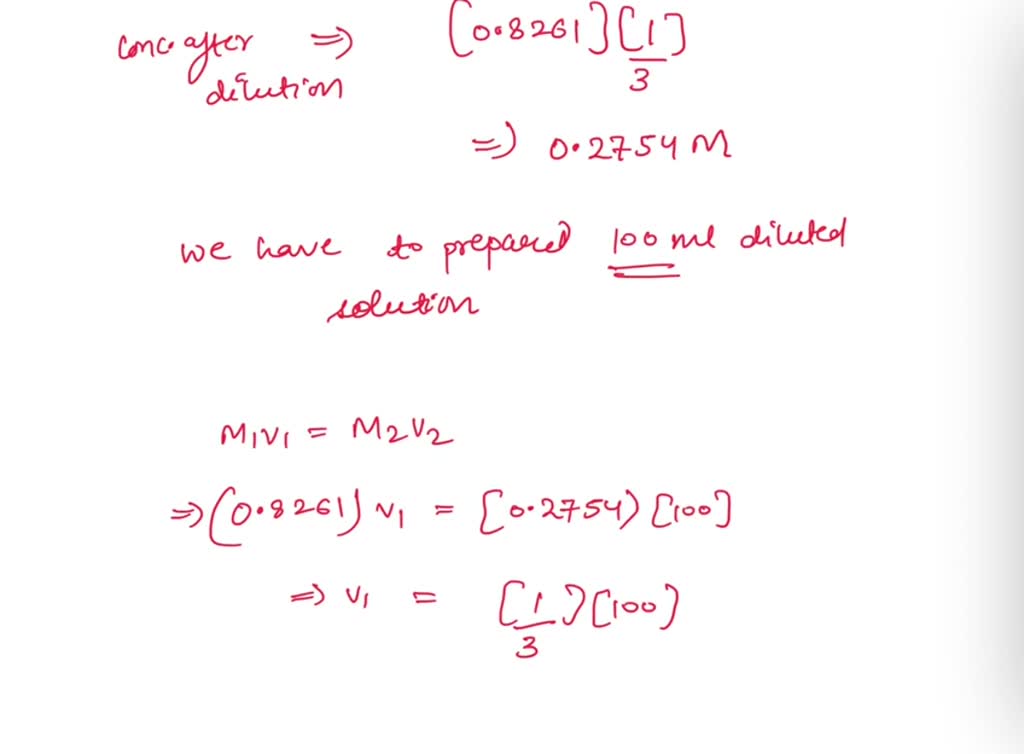 conc. after ⇒ [0.8261][1/3]
dilution
⇒ 0.2754 M
we have to prepared 100 ml diluted
solution
M1V1 = M2V2
⇒ (0.8261) V1 = [0.2754) [100]
⇒ V1 = [1/3) [100)